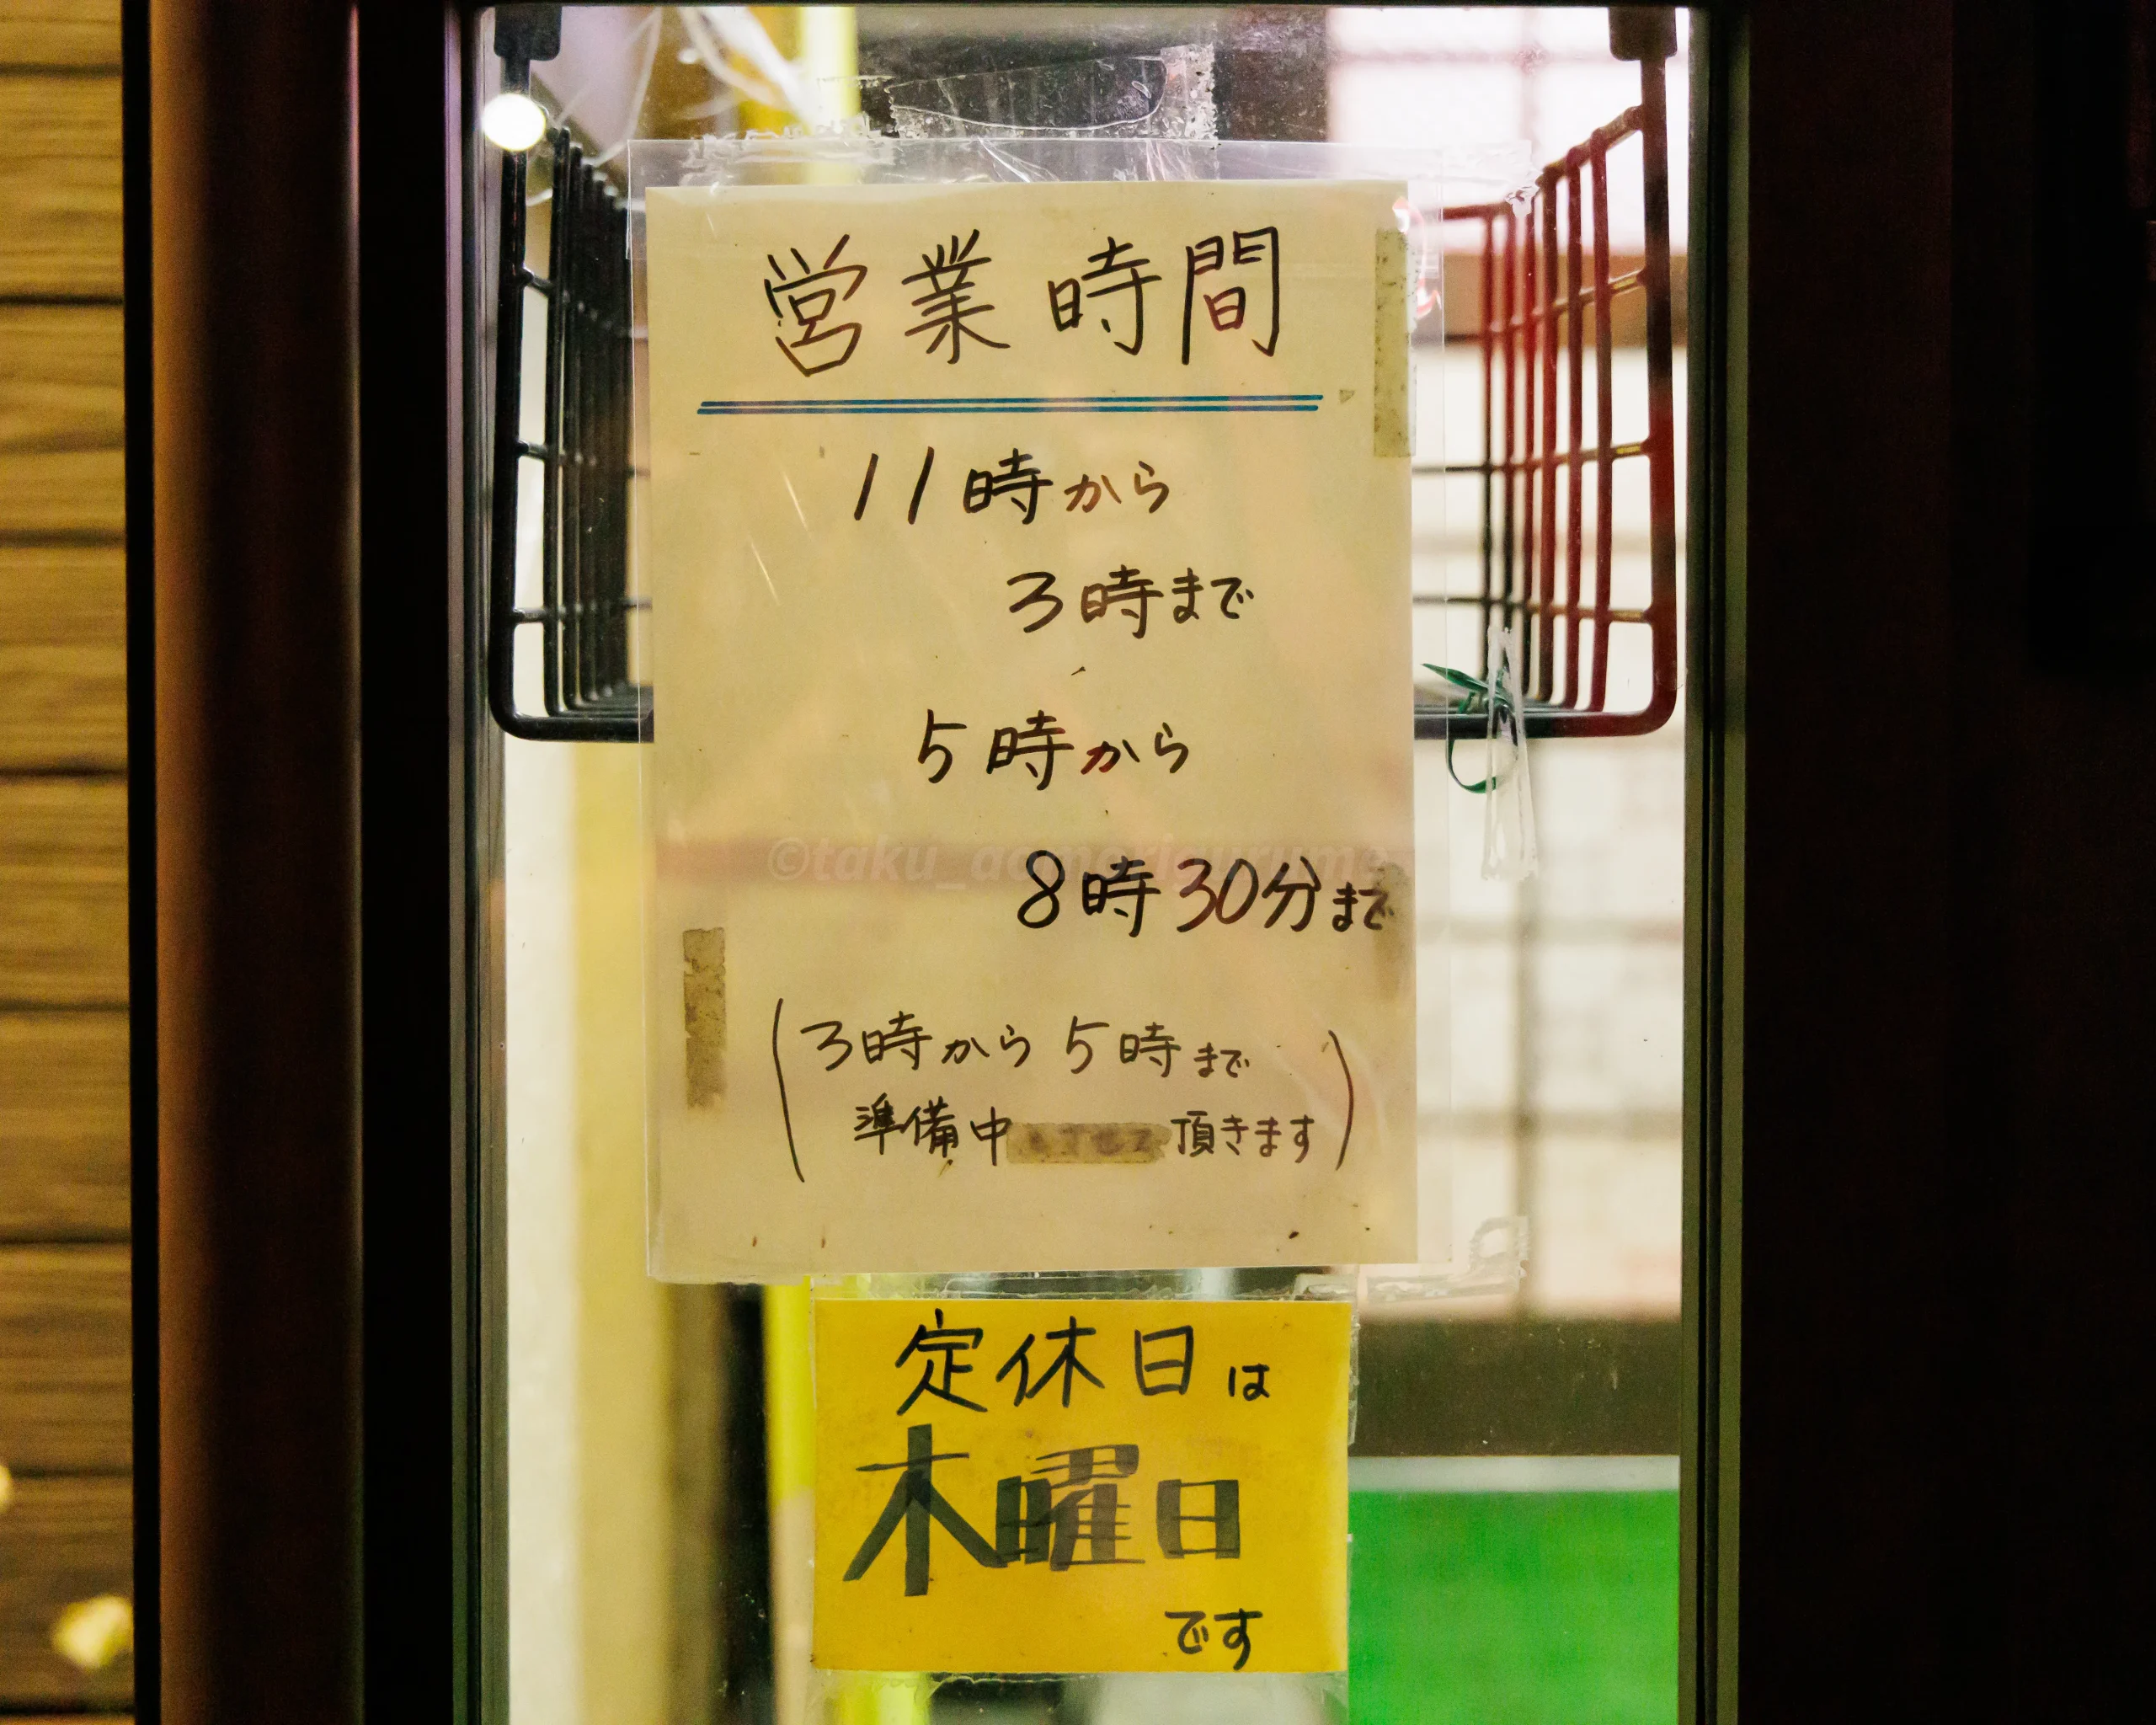 営業時間
11時から
3時まで
5時から
8時30分まで
(3時から5時まで
準備中 頂きます)
定休日は
木曜日
です